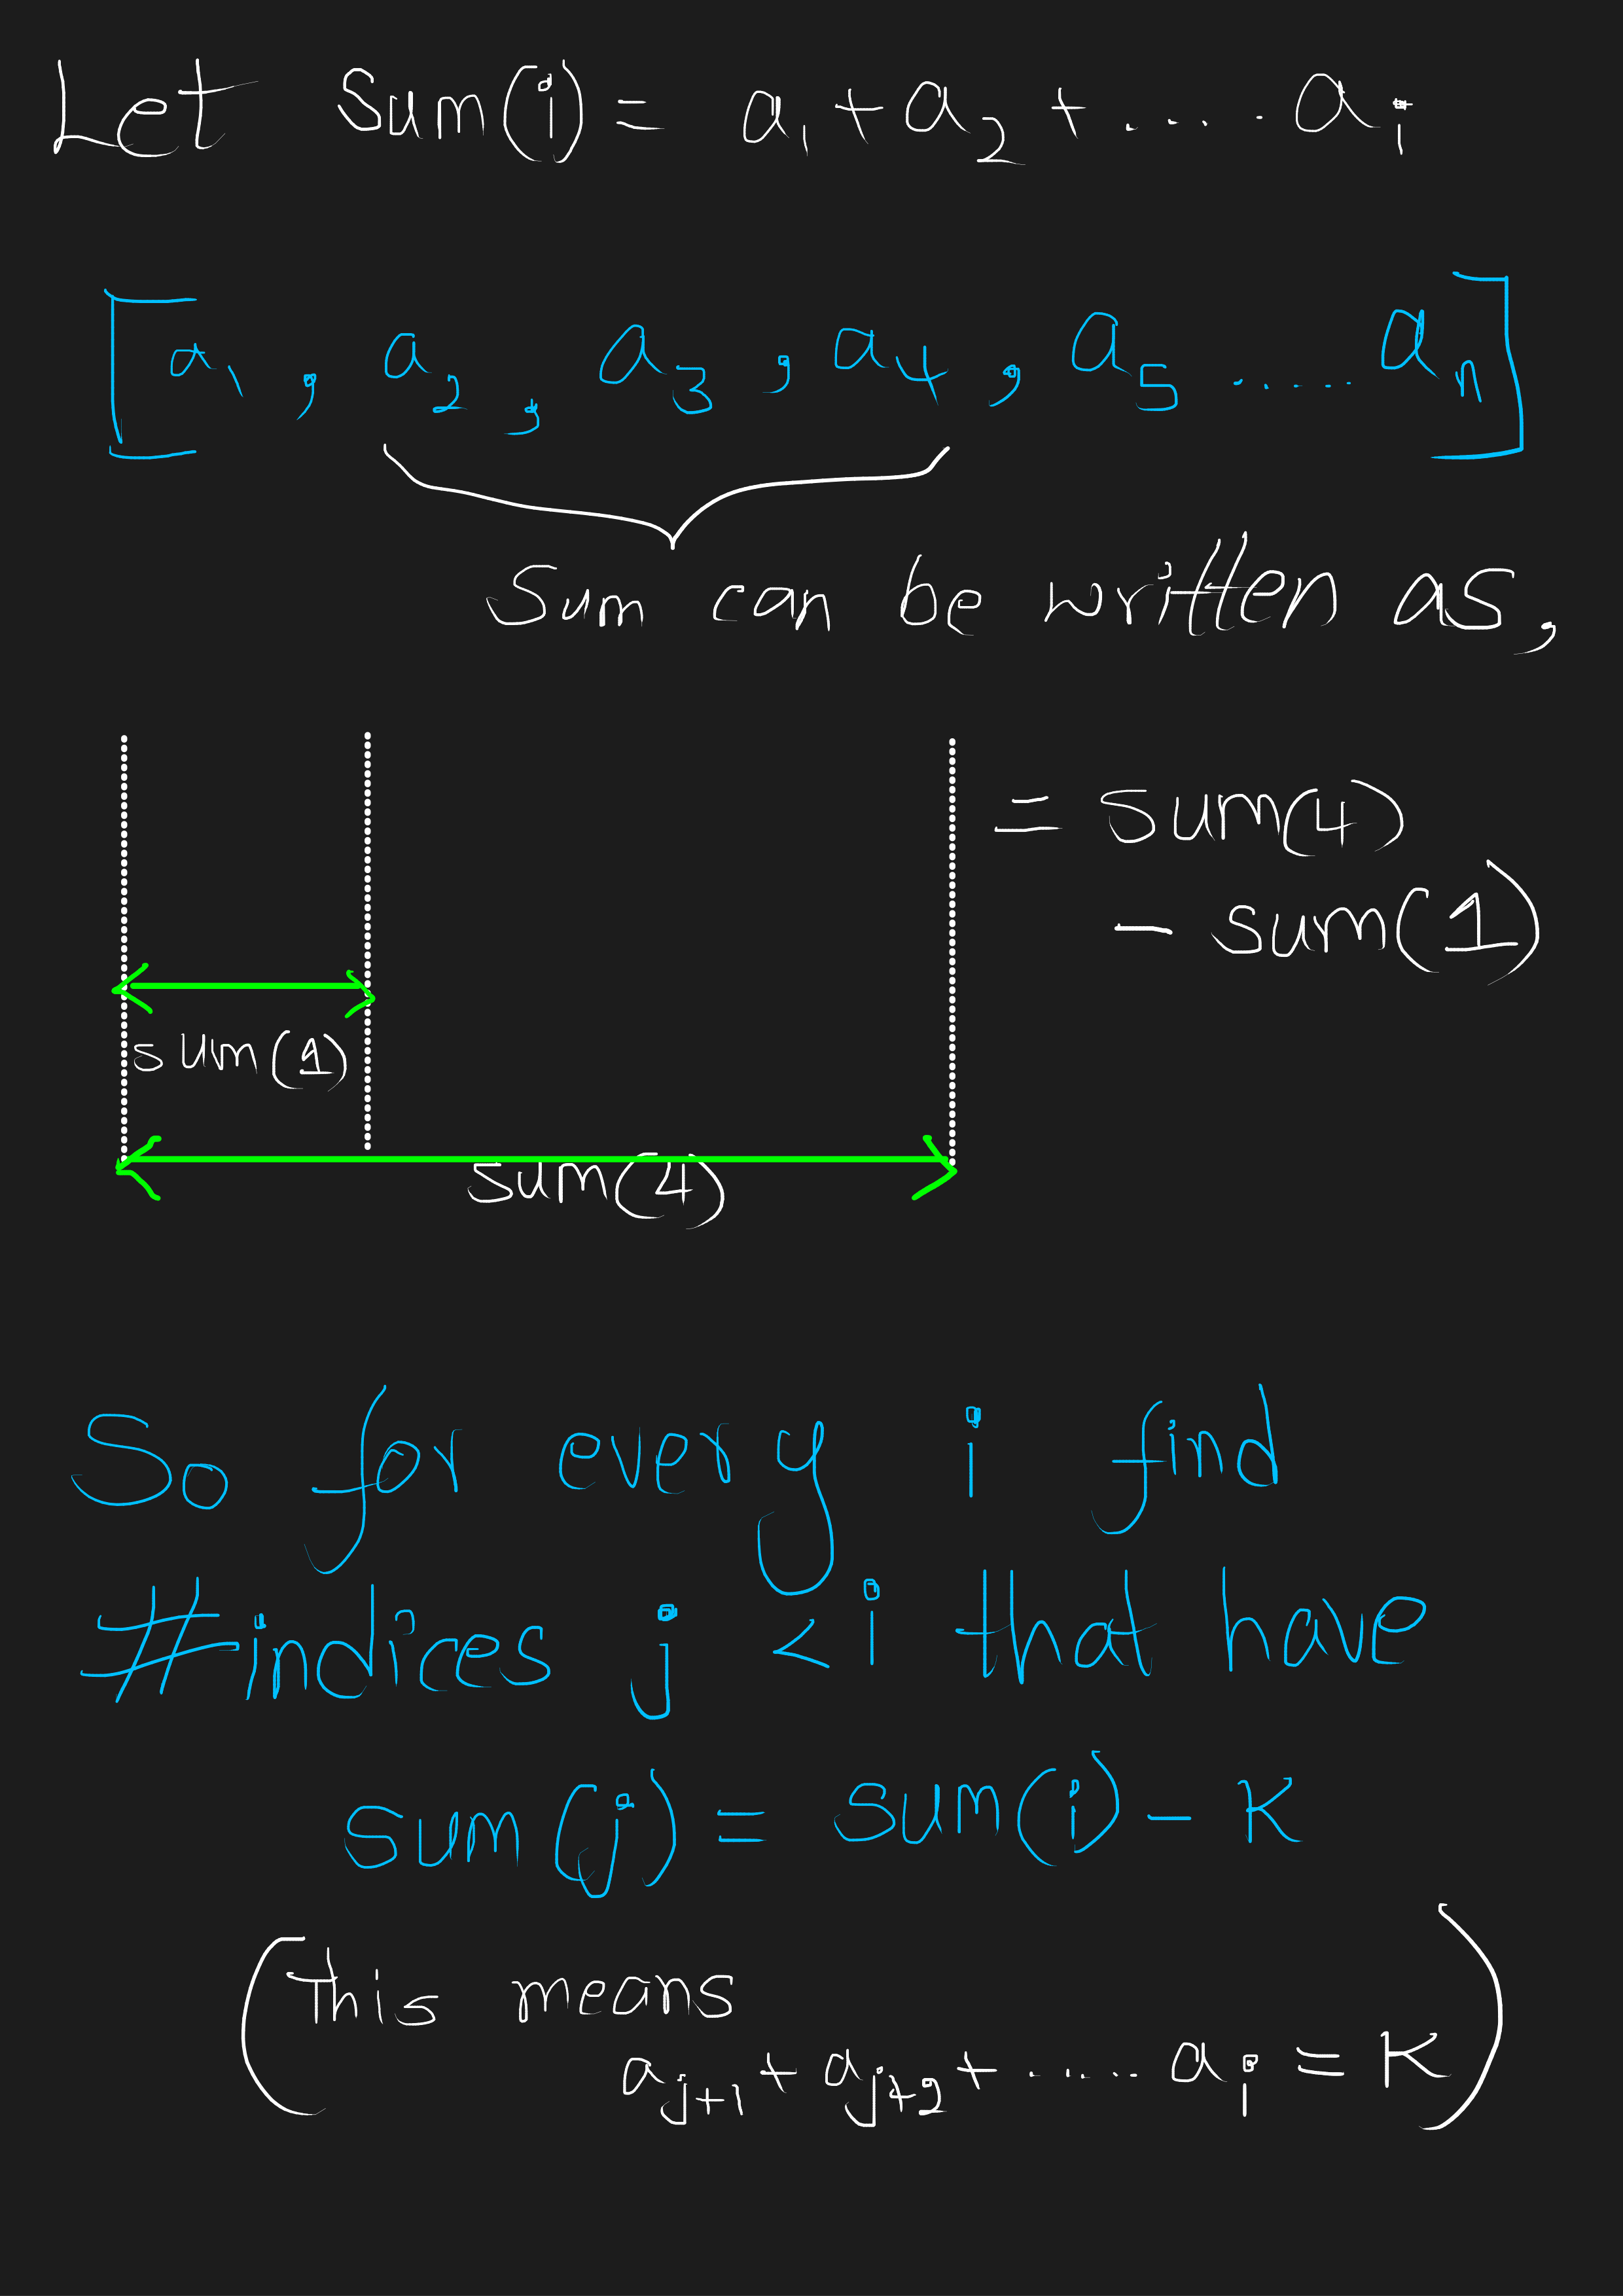 Let sum(i) = a₁ + a₂ + ..... aᵢ
[a₁, a₂, a₃, a₄, a₅ ...... aₙ]
Sum can be written as,
= sum(4)
- sum(1)
sum(1)
sum(4)
So for every i find
#indices j < i that have
sum(j) = sum(i) - K
(This means
aⱼ₊₁ + aⱼ₊₂ + ..... aᵢ = K)